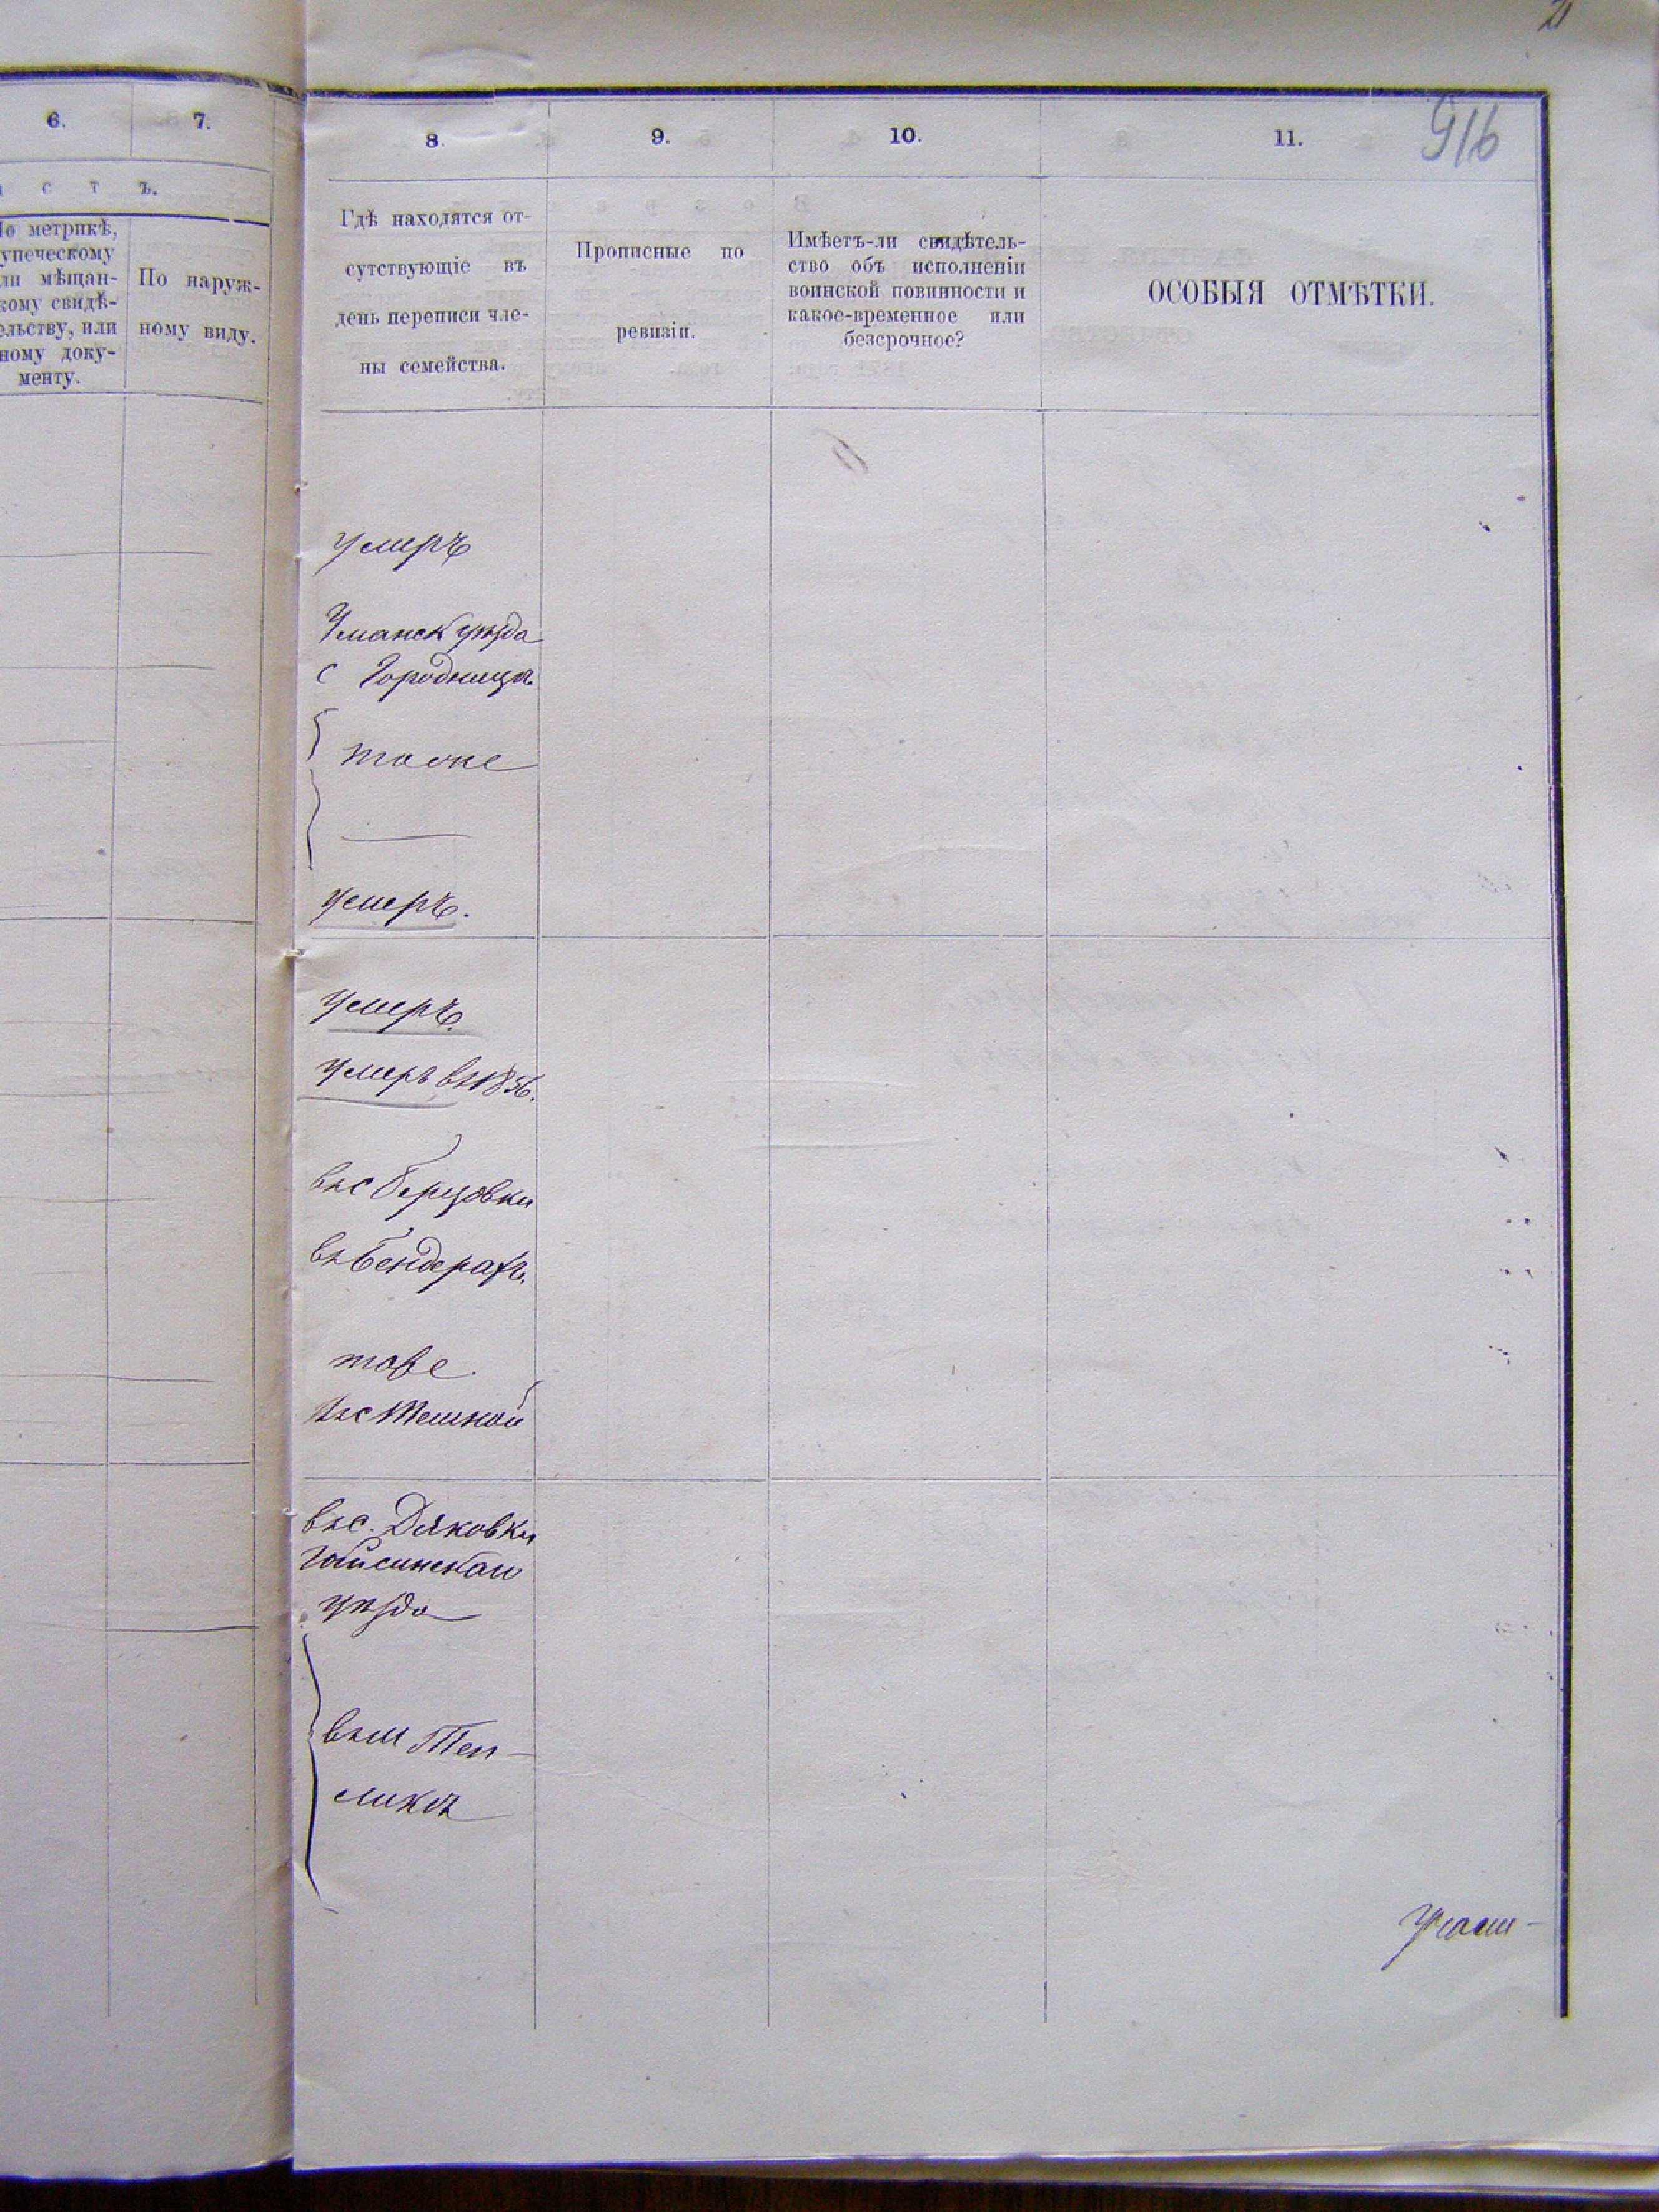 6.
7.
8.
9.
10.
11.
916
с т ъ.
По метрикѣ,
купеческому
или мѣщан-
скому свидѣ-
тельству, или
иному доку-
менту.
По наруж-
ному виду.
Гдѣ находятся от-
сутствующіе въ
день переписи чле-
ны семейства.
Прописные по
ревизіи.
Имѣетъ-ли свидѣтель-
ство объ исполненіи
воинской повинности и
какое-временное или
безсрочное?
ОСОБЫЯ ОТМѢТКИ.
умеръ
Уманск уѣзда
с Городницѣ
тоже
умеръ.
умеръ.
умеръ въ 1856.
въ с Березовки
въ Бендерахъ.
тоже
въ с
въ с. Дяковки
Гайсинскаго
уѣзда
въ м Теп-
ликѣ